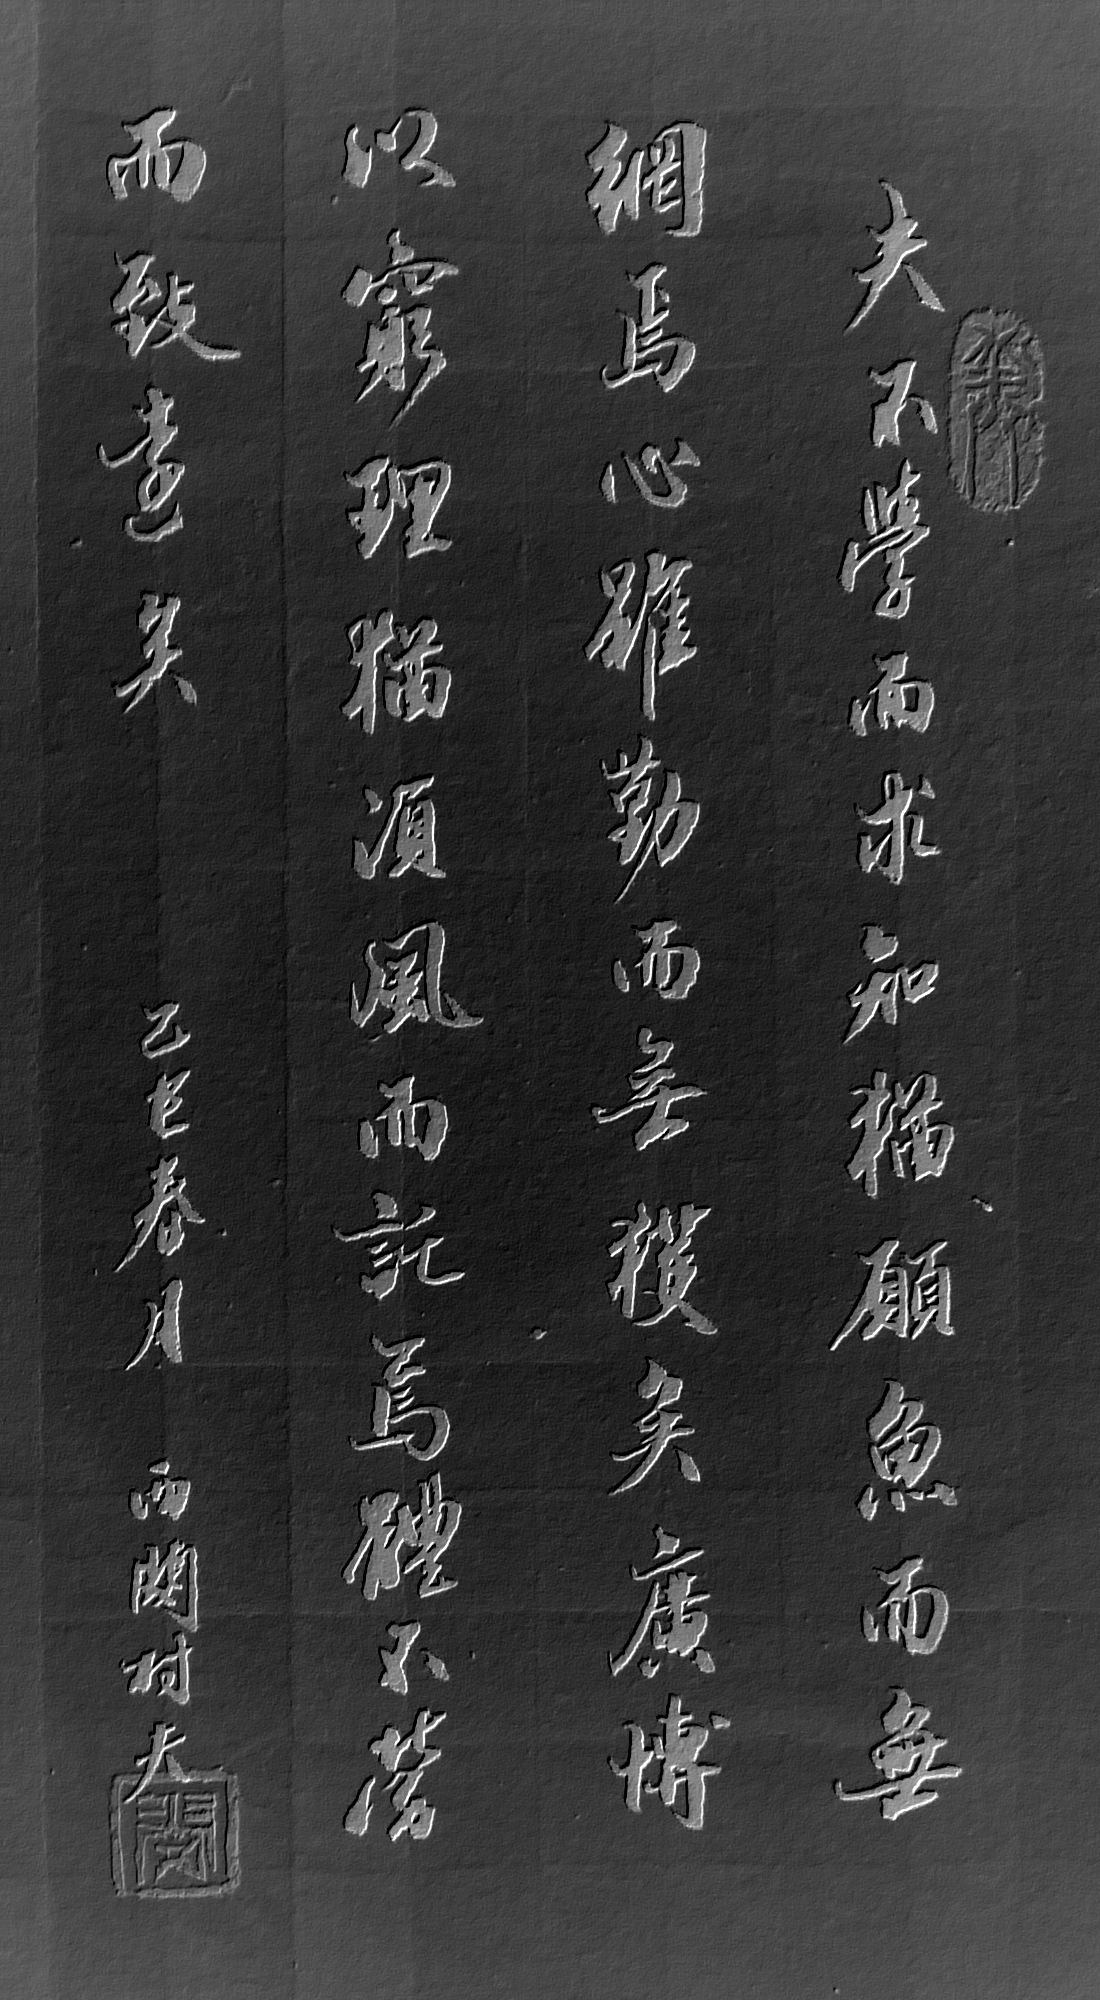 夫不學而求知猶願魚而無
網焉心雖勤而無獲矣廣博
以窮理猶須風而託焉體不勞
而致遠矣
乙巳春月
西閣村夫